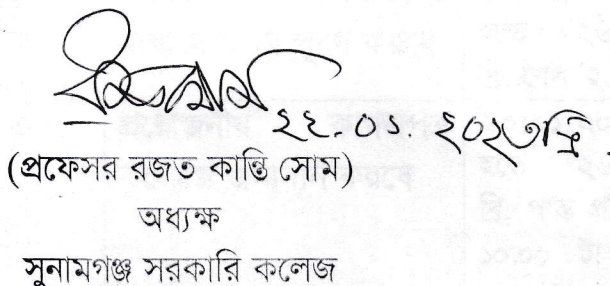 ২২.০১.২০২৩খ্রি.
(প্রফেসর রজত কান্তি সোম)
অধ্যক্ষ
সুনামগঞ্জ সরকারি কলেজ